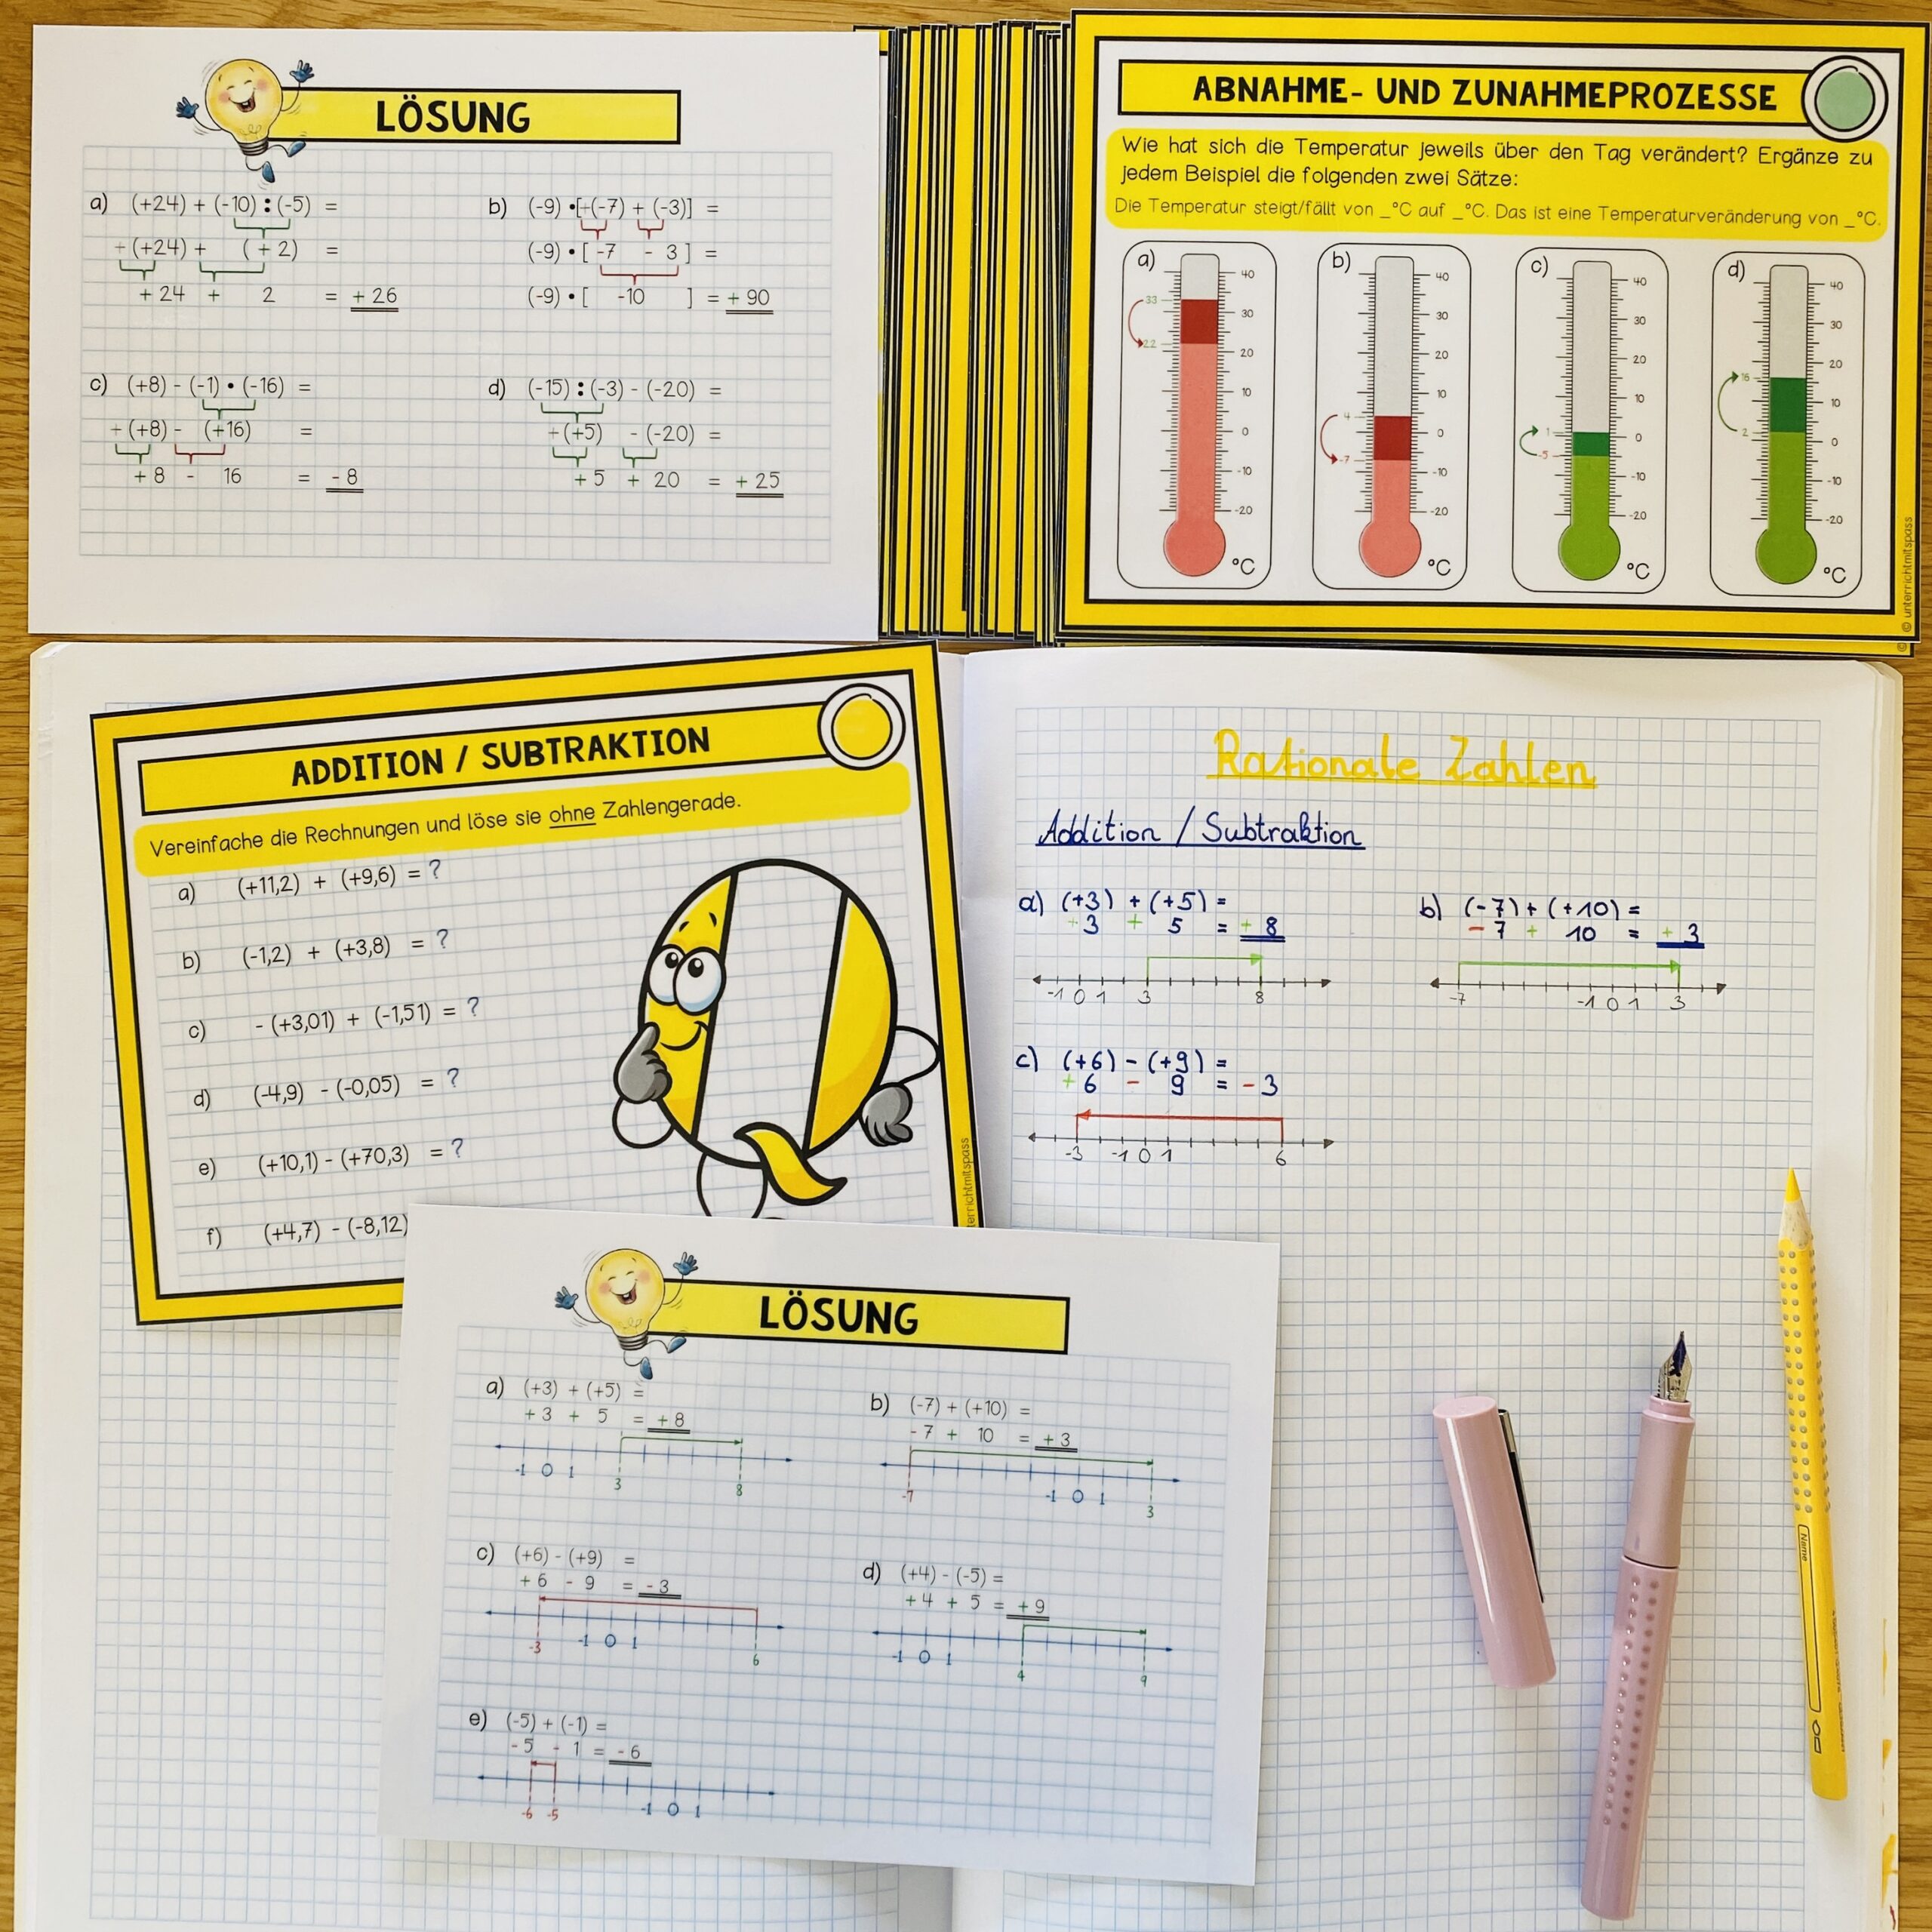 LÖSUNG
a) (+24) + (-10) : (-5) =
+ (+24) + (+2) =
+ 24 + 2 = + 26
b) (-9) • [+(-7) + (-3)] =
(-9) • [ -7 - 3 ] =
(-9) • [ -10 ] = + 90
c) (+8) - (-1) • (-16) =
+ (+8) - (+16) =
+ 8 - 16 = - 8
d) (-15) : (-3) - (-20) =
+ (+5) - (-20) =
+ 5 + 20 = + 25
ABNAHME- UND ZUNAHMEPROZESSE
Wie hat sich die Temperatur jeweils über den Tag verändert? Ergänze zu
jedem Beispiel die folgenden zwei Sätze:
Die Temperatur steigt/fällt von _°C auf _°C. Das ist eine Temperaturveränderung von _°C.
a)
40
33
30
22
20
10
0
-10
-20
°C
b)
40
30
20
10
4
0
-7
-10
-20
°C
c)
40
30
20
10
1
0
-5
-10
-20
°C
d)
40
30
20
16
10
2
0
-10
-20
°C
© unterrichtmitspass
ADDITION / SUBTRAKTION
Vereinfache die Rechnungen und löse sie ohne Zahlengerade.
a) (+11,2) + (+9,6) = ?
b) (-1,2) + (+3,8) = ?
c) - (+3,01) + (-1,51) = ?
d) (-4,9) - (-0,05) = ?
e) (+10,1) - (+70,3) = ?
f) (+4,7) - (-8,12)
terrichtmitspass
Rationale Zahlen
Addition / Subtraktion
a) (+3) + (+5) =
+ 3 + 5 = + 8
-1 0 1 3 8
b) (-7) + (+10) =
- 7 + 10 = + 3
-7 -1 0 1 3
c) (+6) - (+9) =
+ 6 - 9 = - 3
-3 -1 0 1 6
LÖSUNG
a) (+3) + (+5) =
+ 3 + 5 = + 8
-1 0 1 3 8
b) (-7) + (+10) =
- 7 + 10 = + 3
-7 -1 0 1 3
c) (+6) - (+9) =
+ 6 - 9 = - 3
-3 -1 0 1 6
d) (+4) - (-5) =
+ 4 + 5 = + 9
-1 0 1 4 9
e) (-5) + (-1) =
- 5 - 1 = - 6
-6 -5 -1 0 1
Name